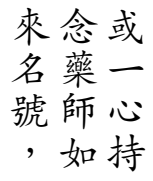 或一心持
念藥師如
來名號，